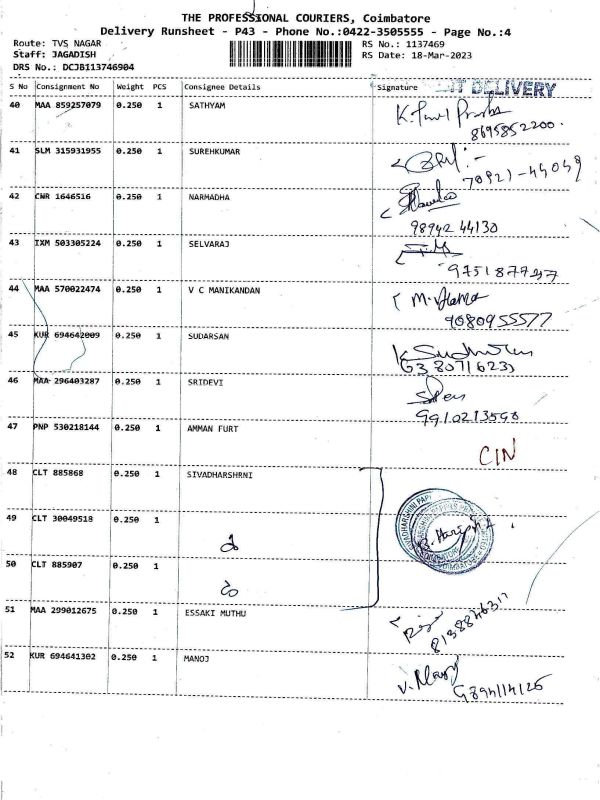 THE PROFESSIONAL COURIERS, Coimbatore
Delivery Runsheet - P43 - Phone No.:0422-3505555 - Page No.:4
Route: TVS NAGAR
Staff: JAGADISH
DRS No.: DCJBI13746904
RS No.: 1137469
RS Date: 18-Mar-2023
S No Consignment No Weight PCS Consignee Details Signature DELIVERY
40 MAA 859257079 0.250 1 SATHYAM
8695852200
41 SLM 315931955 0.250 1 SUREHKUMAR
70921-44049
42 CNR 1646516 0.250 1 NARMADHA
98942 44130
43 IXM 503305224 0.250 1 SELVARAJ
44 MAA 570022474 0.250 1 V C MANIKANDAN
9080955577
45 KUR 694642009 0.250 1 SUDARSAN
46 MAA 296403287 0.250 1 SRIDEVI
47 PNP 530218144 0.250 1 AMMAN FURT
CIN
48 CLT 885868 0.250 1 SIVADHARSHRNI
49 CLT 30049518 0.250 1
50 CLT 885907 0.250 1
51 MAA 299012675 0.250 1 ESSAKI MUTHU
52 KUR 694641302 0.250 1 MANOJ